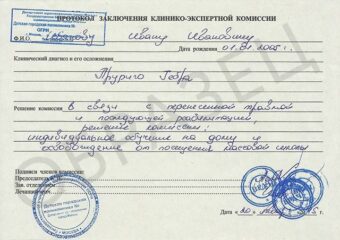 ПРОТОКОЛ ЗАКЛЮЧЕНИЯ КЛИНИКО-ЭКСПЕРТНОЙ КОМИССИИ
Ф.И.О. Иванову Ивану Ивановичу
Дата рождения 01.01.2005 г.
Клинический диагноз и его осложнения
Пруриго Гебра
Решение комиссии в связи с перенесенной травмой
и последующей реабилитацией,
решение комиссии:
индивидуальное обучение на дому и
освобождение от посещения массовой школы
Подписи членов комиссии:
Председатель
Зав. отделением
Лечащий врач
Дата «20»
ОБРАЗЕЦ